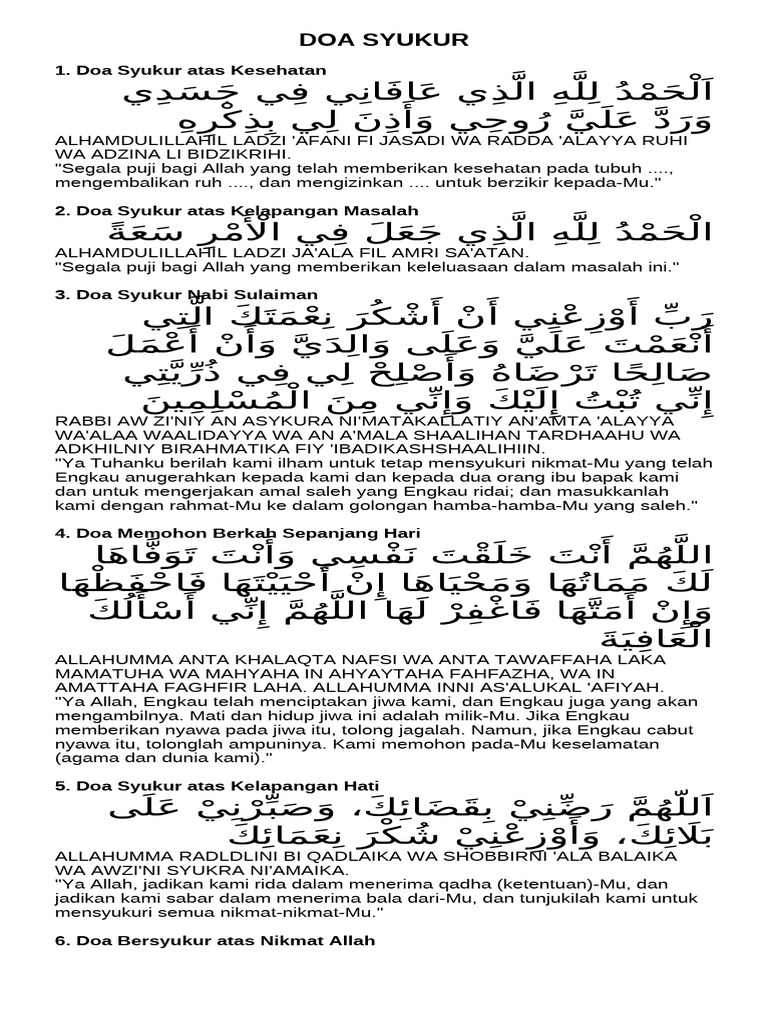 DOA SYUKUR
1. Doa Syukur atas Kesehatan
اَلْحَمْدُ لِلَّهِ الَّذِي عَافَانِي فِي جَسَدِي
وَرَدَّ عَلَيَّ رُوحِي وَأَذِنَ لِي بِذِكْرِهِ
ALHAMDULILLAHIL LADZI 'AFANI FI JASADI WA RADDA 'ALAYYA RUHI
WA ADZINA LI BIDZIKRIHI.
"Segala puji bagi Allah yang telah memberikan kesehatan pada tubuh ....,
mengembalikan ruh ...., dan mengizinkan .... untuk berzikir kepada-Mu."
2. Doa Syukur atas Kelapangan Masalah
الْحَمْدُ لِلَّهِ الَّذِي جَعَلَ فِي الْأَمْرِ سَعَةً
ALHAMDULILLAHIL LADZI JA'ALA FIL AMRI SA'ATAN.
"Segala puji bagi Allah yang memberikan keleluasaan dalam masalah ini."
3. Doa Syukur Nabi Sulaiman
رَبِّ أَوْزِعْنِي أَنْ أَشْكُرَ نِعْمَتَكَ الَّتِي
أَنْعَمْتَ عَلَيَّ وَعَلَى وَالِدَيَّ وَأَنْ أَعْمَلَ
صَالِحًا تَرْضَاهُ وَأَصْلِحْ لِي فِي ذُرِّيَّتِي
إِنِّي تُبْتُ إِلَيْكَ وَإِنِّي مِنَ الْمُسْلِمِينَ
RABBI AW ZI'NIY AN ASYKURA NI'MATAKALLATIY AN'AMTA 'ALAYYA
WA'ALAA WAALIDAYYA WA AN A'MALA SHAALIHAN TARDHAAHU WA
ADKHILNIY BIRAHMATIKA FIY 'IBADIKASHSHAALIHIIN.
"Ya Tuhanku berilah kami ilham untuk tetap mensyukuri nikmat-Mu yang telah
Engkau anugerahkan kepada kami dan kepada dua orang ibu bapak kami
dan untuk mengerjakan amal saleh yang Engkau ridai; dan masukkanlah
kami dengan rahmat-Mu ke dalam golongan hamba-hamba-Mu yang saleh."
4. Doa Memohon Berkah Sepanjang Hari
اللَّهُمَّ أَنْتَ خَلَقْتَ نَفْسِي وَأَنْتَ تَوَفَّاهَا
لَكَ مَمَاتُهَا وَمَحْيَاهَا إِنْ أَحْيَيْتَهَا فَاحْفَظْهَا
وَإِنْ أَمَتَّهَا فَاغْفِرْ لَهَا اللَّهُمَّ إِنِّي أَسْأَلُكَ
الْعَافِيَةَ
ALLAHUMMA ANTA KHALAQTA NAFSI WA ANTA TAWAFFAHA LAKA
MAMATUHA WA MAHYAHA IN AHYAYTAHA FAHFAZHA, WA IN
AMATTAHA FAGHFIR LAHA. ALLAHUMMA INNI AS'ALUKAL 'AFIYAH.
"Ya Allah, Engkau telah menciptakan jiwa kami, dan Engkau juga yang akan
mengambilnya. Mati dan hidup jiwa ini adalah milik-Mu. Jika Engkau
memberikan nyawa pada jiwa itu, tolong jagalah. Namun, jika Engkau cabut
nyawa itu, tolonglah ampuninya. Kami memohon pada-Mu keselamatan
(agama dan dunia kami)."
5. Doa Syukur atas Kelapangan Hati
اَللّٰهُمَّ رَضِّنِيْ بِقَضَائِكَ، وَصَبِّرْنِيْ عَلَى
بَلَائِكَ، وَأَوْزِعْنِيْ شُكْرَ نِعَمَائِكَ
ALLAHUMMA RADLDLINI BI QADLAIKA WA SHOBBIRNI 'ALA BALAIKA
WA AWZI'NI SYUKRA NI'AMAIKA.
"Ya Allah, jadikan kami rida dalam menerima qadha (ketentuan)-Mu, dan
jadikan kami sabar dalam menerima bala dari-Mu, dan tunjukilah kami untuk
mensyukuri semua nikmat-nikmat-Mu."
6. Doa Bersyukur atas Nikmat Allah